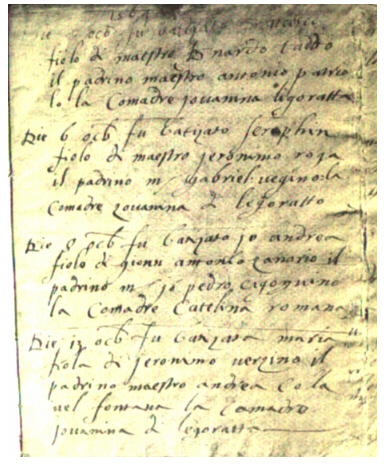 1564
ocb fu batizato
fiolo di maestro Bnardo taddo
il padrino maestro antonio patrio
lo la Comadre jovanina legoratta
Die 6 ocb fu batizato seraphin
fiolo di maestro jeronimo roja
il padrino m gabriel vegino la
Comadre zovanina di legoratto
Die 8 ocb fu batizato jo andrea
fiolo di antonio zanario il
padrino m jo pedro
la Comadre Catelina romana
Die 12 ocb fu batizata maria
fiola di jeronimo verzino il
padrino maestro andrea cola
vel fontana la comadre
jovanina di legoratta